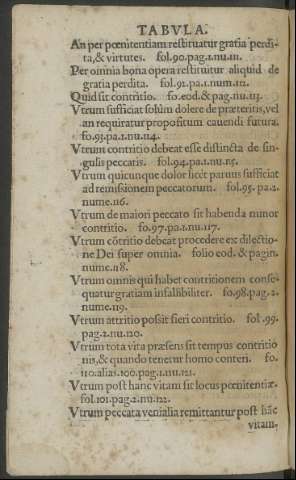 TABVLA.
An per pœnitentiam restituatur gratia perdi-
ta, & virtutes. fol.90.pag.1.nu.111.
Per omnia bona opera restituitur aliquid de
gratia perdita. fol.92.pa.1.num.112.
Quid sit contritio. fo.eod.& pag.nu.113.
Vtrum sufficiat solùm dolere de præteritis, vel
an requiratur propositum cavendi futura.
fo.93.pa.1.nu.114.
Vtrum contritio debeat esse distincta de sin-
gulis peccatis. fol.94.pa.1.nu.115.
Vtrum quicunque dolor licèt parvus sufficiat
ad remissionem peccatorum. fol.95.pa.2.
nume.116.
Vtrum de maiori peccato sit habenda minor
contritio. fo.97.pa.1.nu.117.
Vtrum cõtritio debeat procedere ex dilectio-
ne Dei super omnia. folio eod. & pagin.
nume.118.
Vtrum omnis qui habet contritionem conse-
quatur gratiam infallibiliter. fo.98.pag.2.
nume.119.
Vtrum attritio possit fieri contritio. fol.99.
pag.2.nu.120.
Vtrum tota vita præsens sit tempus contritio
nis, & quando tenetur homo conteri. fo.
110.alias.100.pag.1.nu.121.
Vtrum post hanc vitam sit locus pœnitentiæ.
fol.101.pag.2.nu.122.
Vtrum peccata venialia remittantur post hãc
vitam.